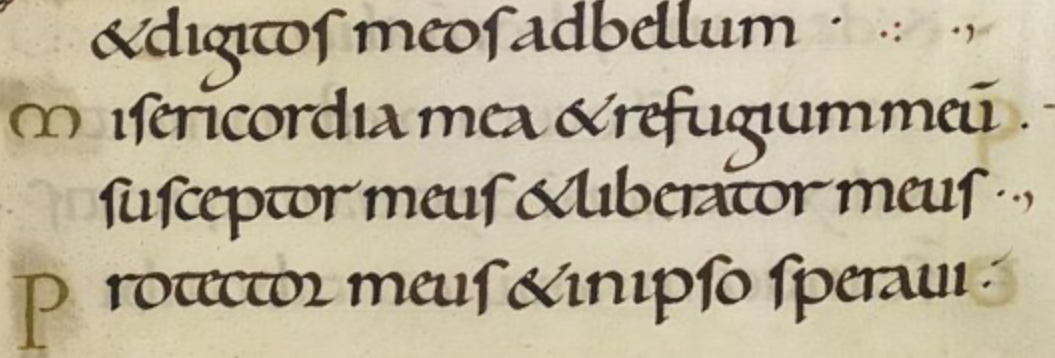 &digitoſ meoſ adbellum · .: .,
Miſericordia mea &refugium meū .
ſuſceptor meuſ &liberator meuſ ·.,
Protector meuſ &inipſo ſperaui .·